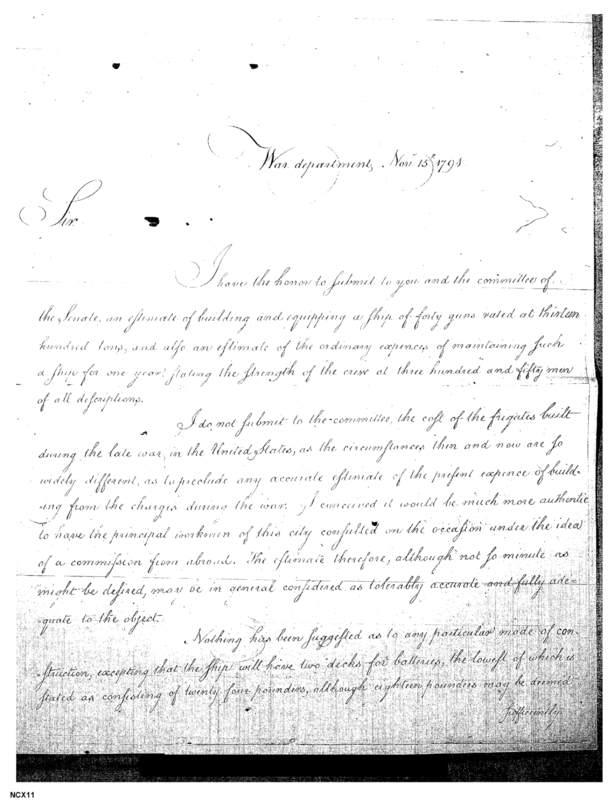 War department, Novr 15th 1791
Sir
I have the honor to submit to you and the committee of
the Senate, an estimate of building and equipping a ship of forty guns rated at thirteen
hundred tons, and also an estimate of the ordinary expences of maintaining such
a ship for one year: stating the strength of the crew at three hundred and fifty men
of all descriptions.
I do not submit to the committee, the cost of the frigates built
during the late war, in the United States, as the circumstances then and now are so
widely different, as to preclude any accurate estimate of the present expence of build-
ing from the charges during the war. I conceived it would be much more authentic
to have the principal workmen of this city consulted on the occasion under the idea
of a commission from abroad. The estimate therefore, although not so minute as
might be desired, may be in general considered as tolerably accurate and fully ade-
quate to the object.
Nothing has been suggested as to any particular mode of con-
struction, excepting that the ship will have two decks for batteries, the lowest of which is
stated as consisting of twenty four pounders, although eighteen pounders may be deemed
sufficiently
NCX11